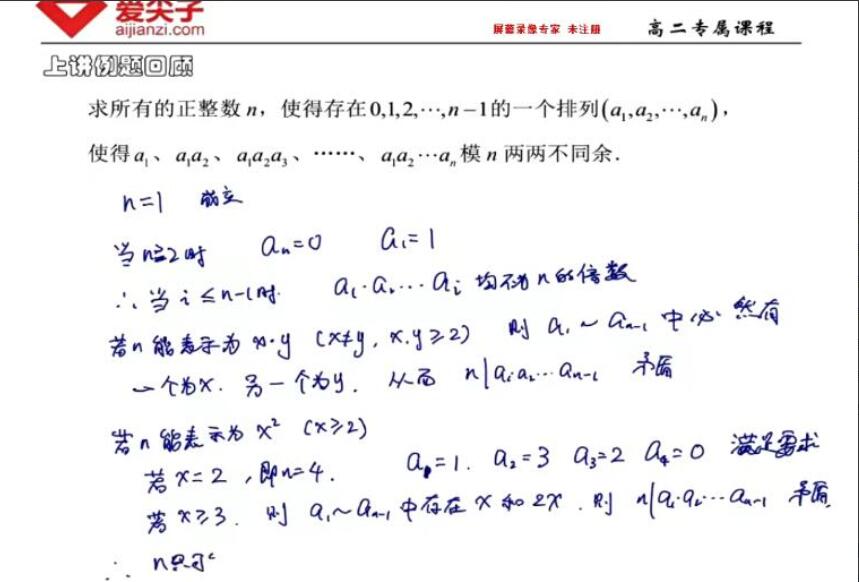 爱尖子
aijianzi.com
屏幕录像专家 未注册
高二专属课程
上讲例题回顾
求所有的正整数 n，使得存在0,1,2,⋯,n−1的一个排列(a₁,a₂,⋯,aₙ)，
使得a₁、a₁a₂、a₁a₂a₃、⋯⋯、a₁a₂⋯aₙ模 n 两两不同余．
n=1 成立
当n≥2时 aₙ=0 a₁=1
∴ 当 i≤n-1时 a₁·a₂⋯aᵢ 均不为n的倍数
若n能表示为 x·y (x≠y, x.y≥2) 则 a₁～aₙ₋₁ 中必然有
一个为x. 另一个为y. 从而 n|a₁a₂⋯aₙ₋₁ 矛盾
若n能表示为 x² (x≥2)
若 x=2, 即n=4. a₁=1. a₂=3 a₃=2 a₄=0 满足要求
若 x≥3. 则 a₁～aₙ₋₁ 中存在 x 和 2x. 则 n|a₁·a₂⋯aₙ₋₁ 矛盾
∴ n只可